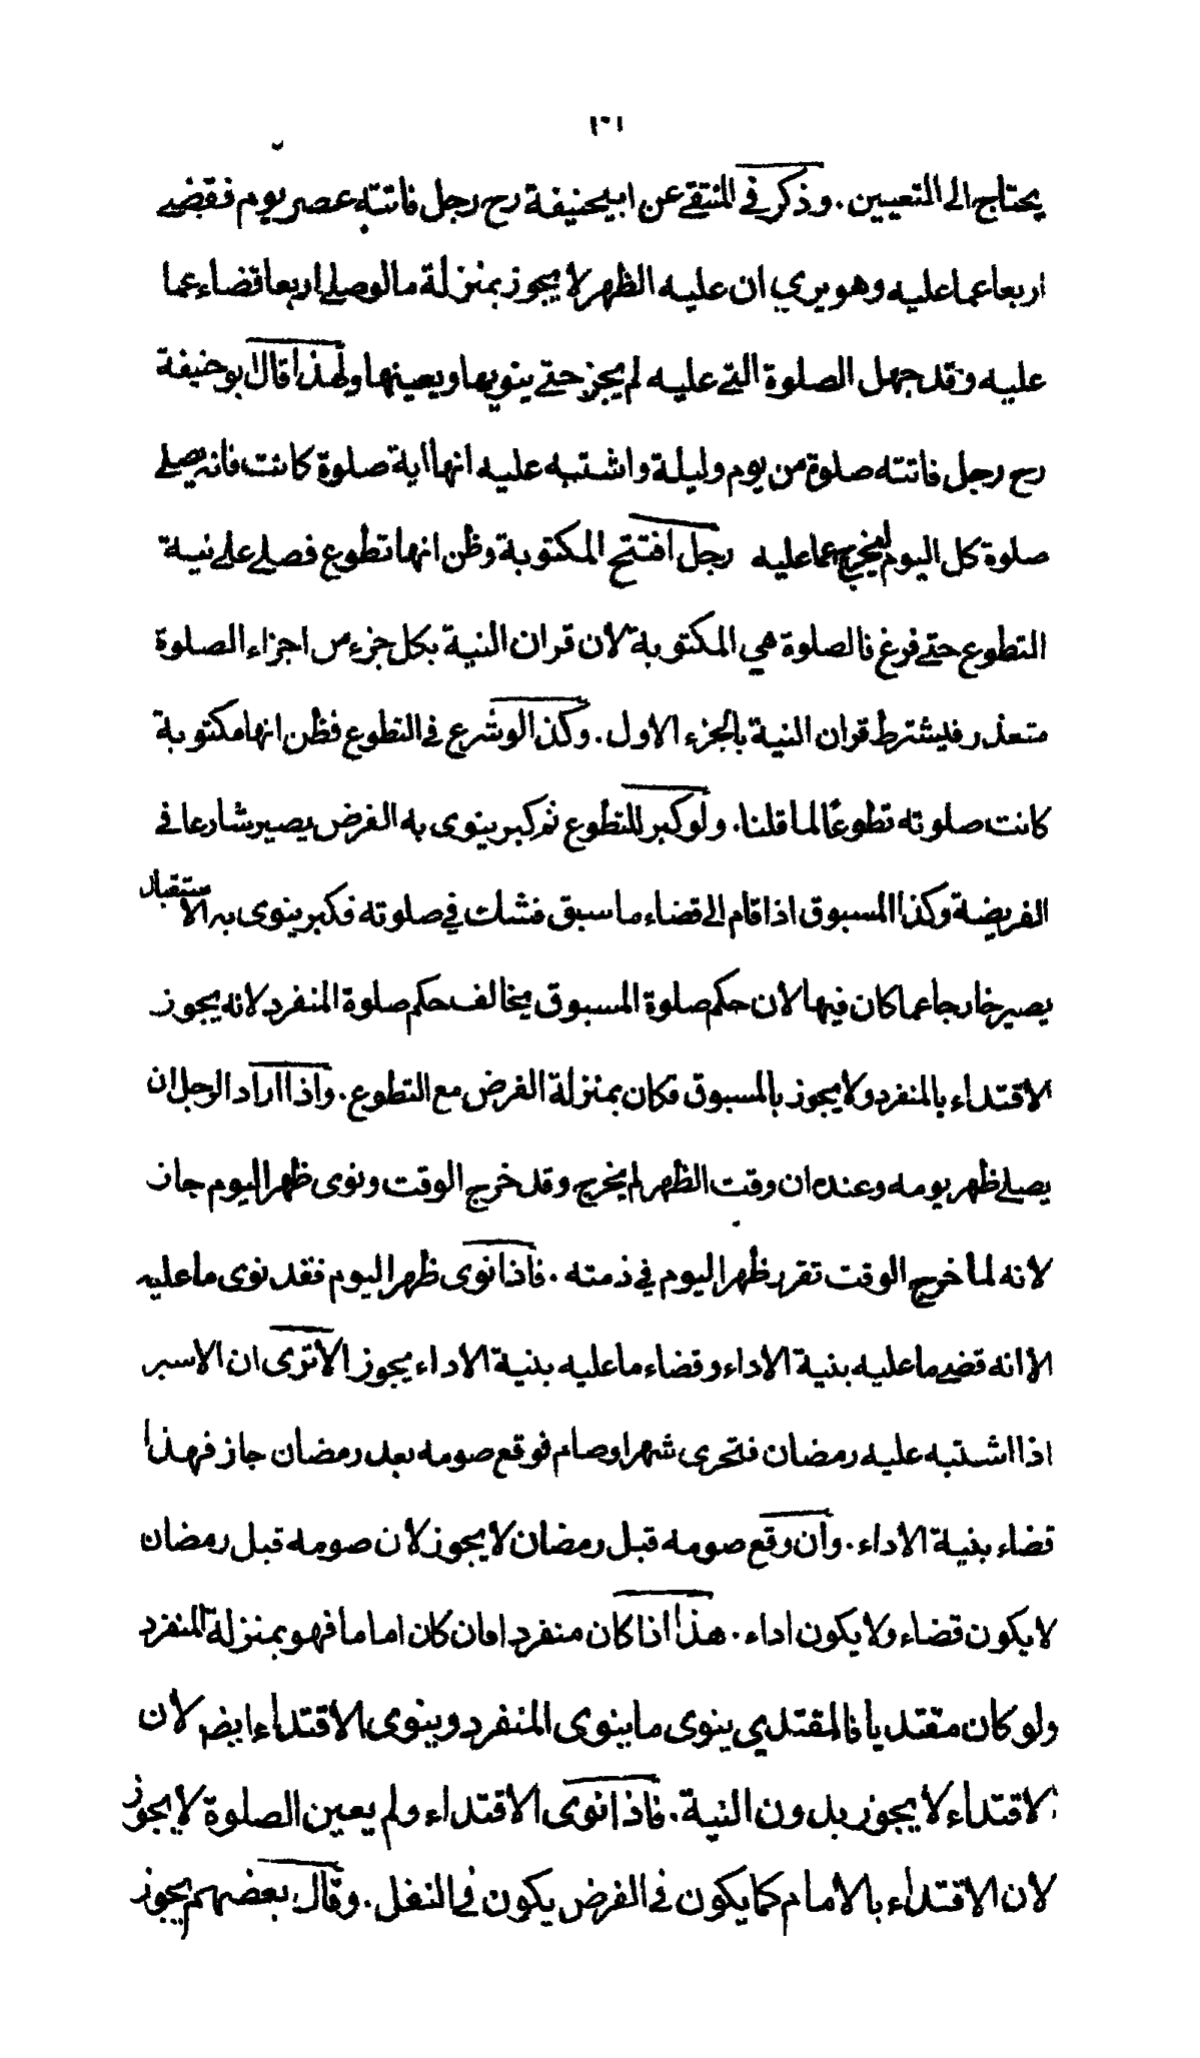 ١٠١
يحتاج الى التعيين . وذكر في المنتقى عن ابيحنيفة رح رجل فاتته عصر يوم فقضى
اربعا عما عليه وهو يرى ان عليه الظهر لا يجوز بمنزلة ما لو صلى اربعا قضاء عما
عليه وقد جهل الصلوة التي عليه لم يجز حتى ينويها ويعينها ولهذا قال ابو حنيفة
رح رجل فاتته صلوة من يوم وليلة واشتبه عليه انها اية صلوة كانت فانه يصلى
صلوة كل اليوم ليخرج عما عليه رجل افتتح المكتوبة وظن انها تطوع فصلى على نية
التطوع حتى فرغ فالصلوة هي المكتوبة لان قران النية بكل جزء من اجزاء الصلوة
متعذر فليشترط قران النية بالجزء الاول . وكذا لو شرع في التطوع فظن انها مكتوبة
كانت صلوته تطوعا لما قلنا . ولو كبر للتطوع ثم كبر ينوى به الفرض يصير شارعا في
الفريضة وكذا المسبوق اذا قام الى قضاء ما سبق فشك في صلوته فكبر ينوى به الاستقبال
يصير خارجا عما كان فيها لان حكم صلوة المسبوق يخالف حكم صلوة المنفرد لانه يجوز
الاقتداء بالمنفرد ولا يجوز بالمسبوق فكان بمنزلة الفرض مع التطوع . واذا اراد الرجل ان
يصلى ظهر يومه وعنده ان وقت الظهر لم يخرج وقد خرج الوقت ونوى ظهر اليوم جاز
لانه لما خرج الوقت تقرر ظهر اليوم في ذمته . فاذا نوى ظهر اليوم فقد نوى ما عليه
الا انه قضى ما عليه بنية الاداء وقضاء ما عليه بنية الاداء يجوز الا ترى ان الاسير
اذا اشتبه عليه رمضان فتحرى شهرا وصام فوقع صومه بعد رمضان جاز فهذا
قضاء بنية الاداء . وان وقع صومه قبل رمضان لا يجوز لان صومه قبل رمضان
لا يكون قضاء ولا يكون اداء . هذا اذا كان منفردا فان كان اماما فهو بمنزلة المنفرد
ولو كان مقتديا فالمقتدي ينوى ما ينوى المنفرد وينوى الاقتداء ايضا لان
الاقتداء لا يجوز بدون النية . فاذا نوى الاقتداء ولم يعين الصلوة لا يجوز
لان الاقتداء بالامام كما يكون في الفرض يكون في النفل . وقال بعضهم يجوز